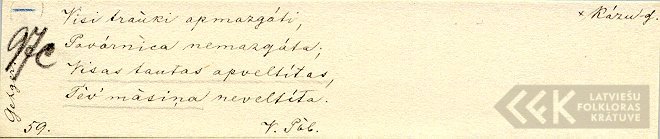 Visi trauki apmazgáti,
Pavárnica nemazgáta;
Visas tautas apveltítas,
Tév' másiņa neveltíta.
× Rázu g.
97C
59.
V. Pūb.
LATVIEŠU
FOLKLORAS
KRĀTUVE